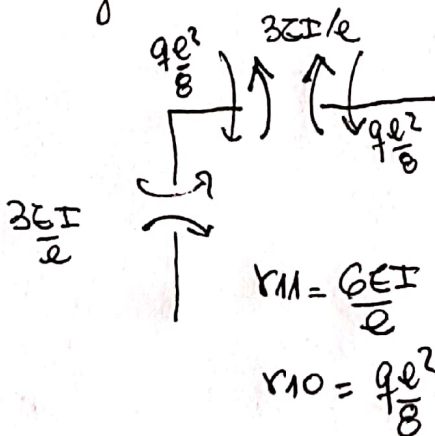 qℓ²/8
3EI/ℓ
qℓ²/8
3EI/ℓ
r11 = 6EI/ℓ
r10 = qℓ²/8